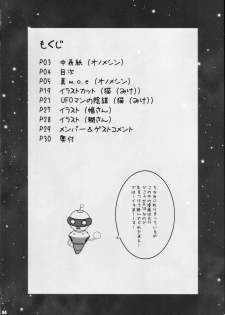 もくじ
P03 中表紙（オノメシン）
P04 目次
P05 真m.o.e（オノメシン）
P19 イラストカット（猫（みけ））
P21 UFOマンの陰謀（猫（みけ））
P27 イラスト（幡さん）
P28 イラスト（鞘さん）
P29 メンバー＆ゲストコメント
P30 奥付